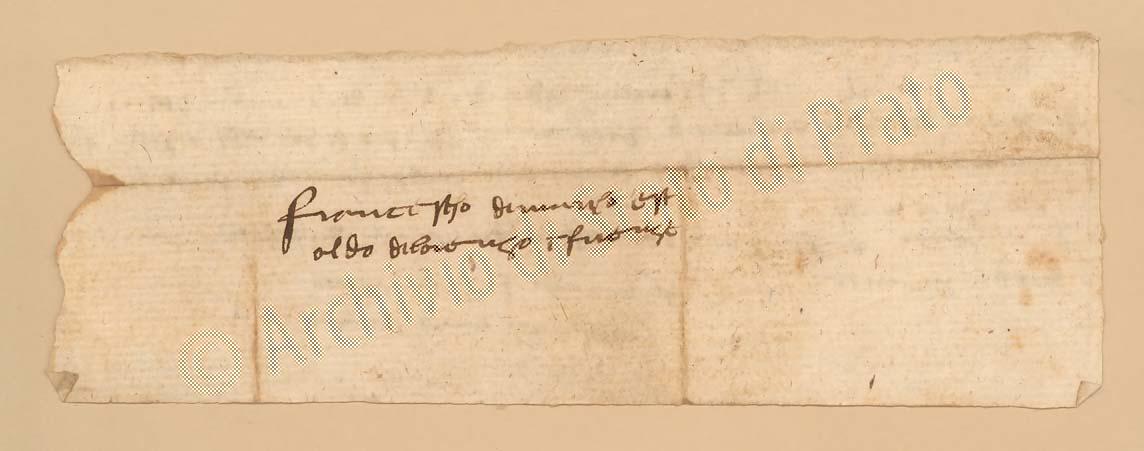 Francescho di marcho e st
oldo di lorenzo i firenze
© Archivio di Stato di Prato